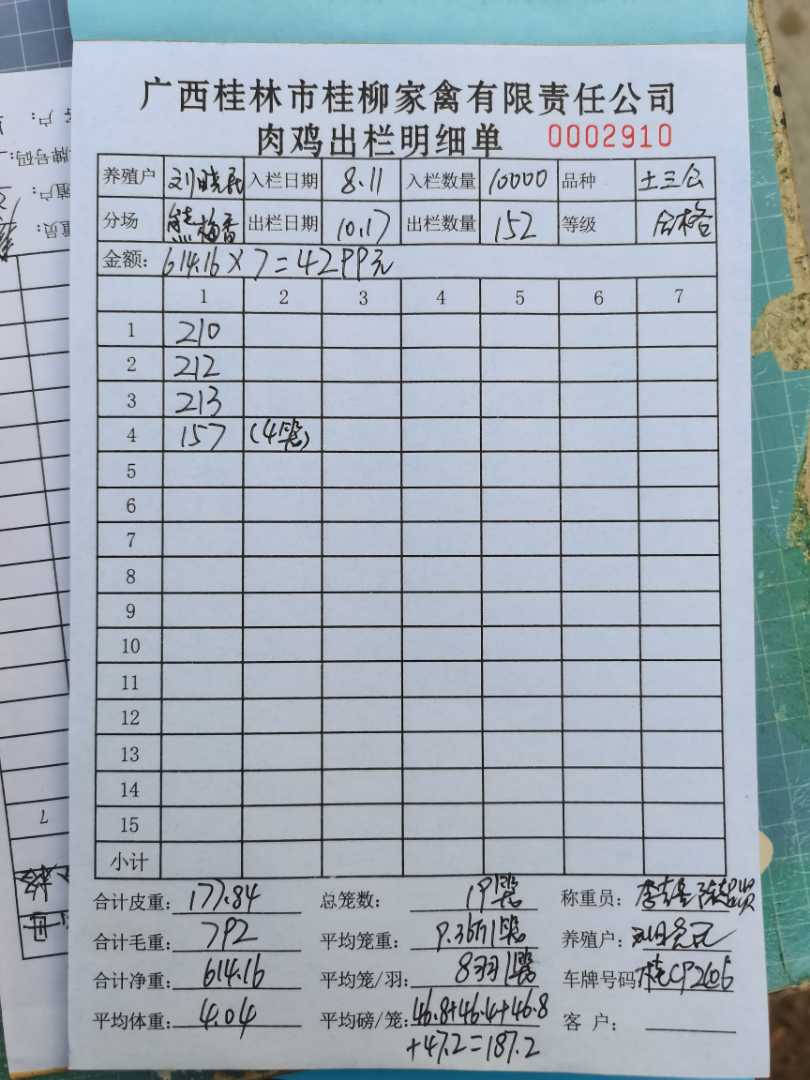 广西桂林市桂柳家禽有限责任公司
肉鸡出栏明细单 0002910
养殖户 刘晓民 入栏日期 8.11 入栏数量 10000 品种 土三公
分场 熊梅香 出栏日期 10.17 出栏数量 152 等级 合格
金额: 614.16×7=4299元
1 2 3 4 5 6 7
1 210
2 212
3 213
4 157 (4笼)
5
6
7
8
9
10
11
12
13
14
15
小计
合计皮重: 177.84 总笼数: 19笼 称重员:
合计毛重: 792 平均笼重: 9.36斤/笼 养殖户:
合计净重: 614.16 平均笼/羽: 8羽/笼 车牌号码: 桂CP2606
平均体重: 4.04 平均磅/笼: 46.8+46.4+46.8
+47.2=187.2
客 户: